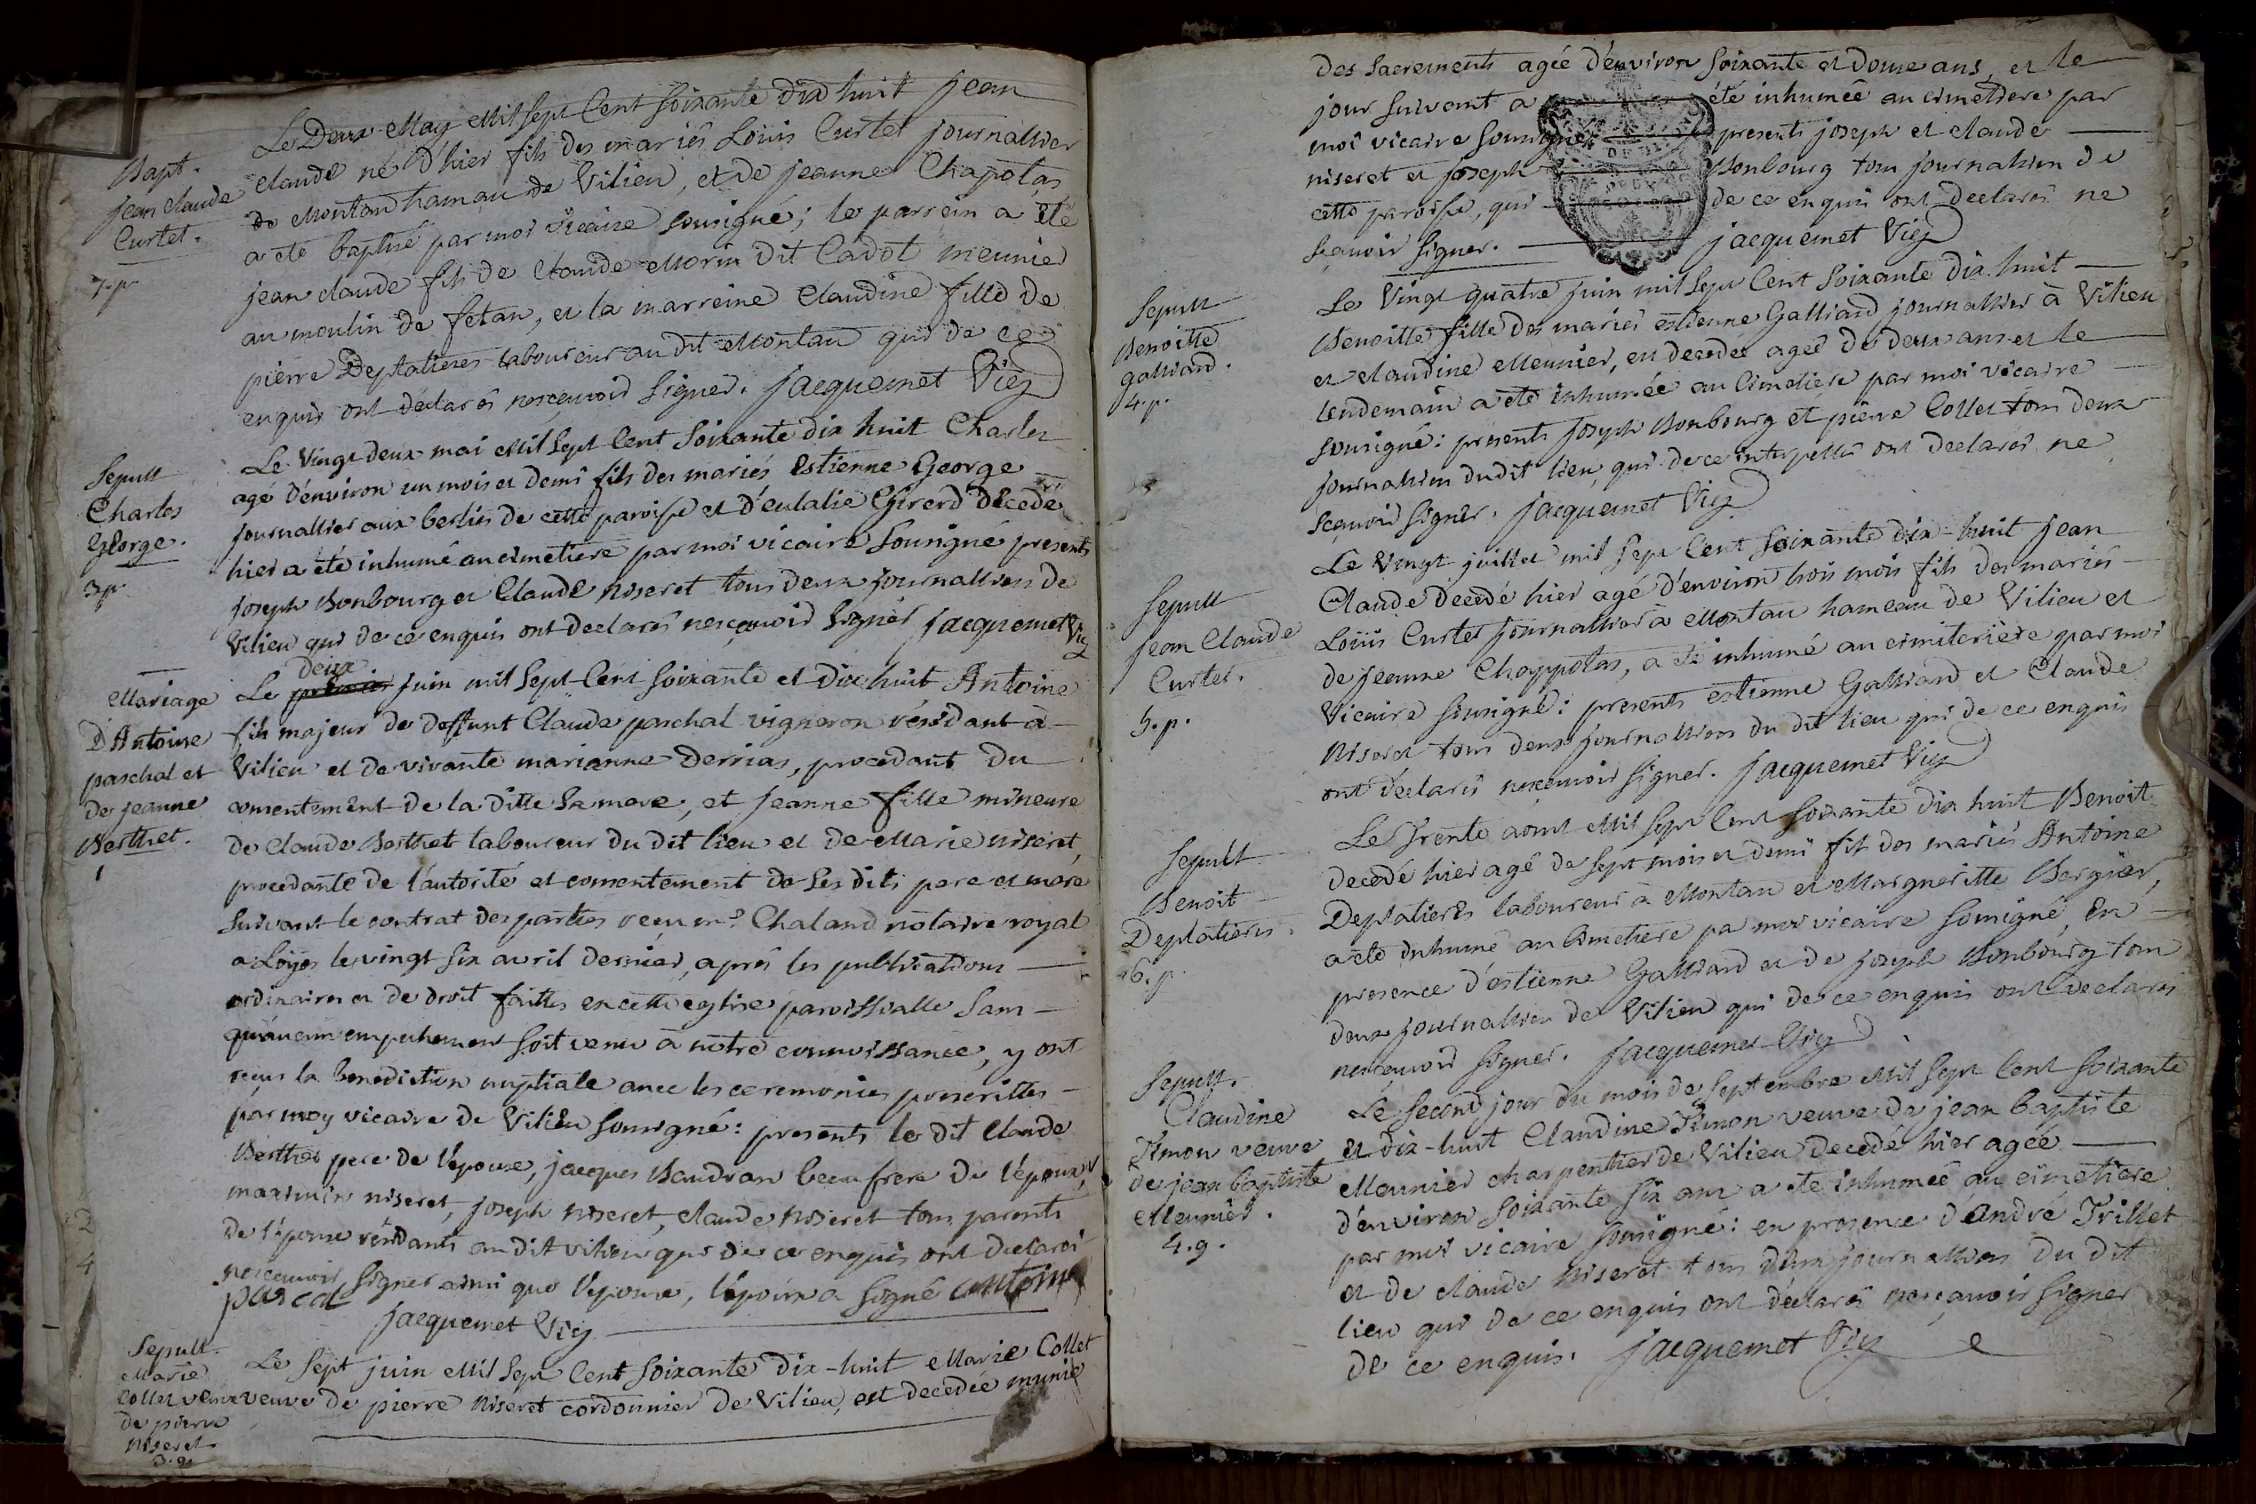 Bapt.
jean claude
Curtet.
7. p
Le Deux May Mil Sept Cent Soixante dix huit jean
claude né d'hier fils des mariés Loüis Curtet journallier
de Montan hamau de Vilieu, et de jeanne Chapolas
a eté baptisé par moi vicaire sousigné; le parrein a été
jean claude fils de claude Morin dit Cadot meunier
au moulin de fetan, et la marreine Claudine fille de
pierre Deplatieres laboureur au dit Montan qui de ce
enquis ont déclarés nesçauoir signer. jacquemet Vic
Sepult
Charles
George.
3 p.
Le Vingt deux mai Mil Sept Cent Soixante dix huit Charles
agé d'environ un mois et demi fils des mariés Estienne George
journallier aux berlies de cette paroisse et d'eulalie Girerd décédé
hier a été inhumé au cimetiere par moi vicaire sousigné presents
joseph Bonbourg et Claude Niseret tous deux journalliers de
Vilieu qui de ce enquis ont declarés nesçauoir signer jacquemet Vic
Mariage
D'Antoine
paschal et
de jeanne
Berthet.
1
deux
Le juin mil Sept Cent Soixante et dix huit Antoine
fils majeur de deffunt Claude paschal vigneron résidant à
Vilieu et de vivante marianne Derrias, procedant du
consentement de la ditte Sa mere, et jeanne fille mineure
de Claude Berthet laboureur du dit lieu et de Marie niseret,
procedante de l'autorité et consentement de Ses dits pere et mere
Suivant le contrat des parties reçu me Chaland notaire royal
a Loyes le vingt Six avril dernier, après les publications
ordinaires et de droit faittes en cette eglise paroissialle Sans
qu'aucun empechement soit venu à nôtre connoissance, y ont
reçus la benediction nuptiale avec les ceremonies prescrittes
par moy vicaire de Vilieu sousigné: presents le dit Claude
Berthet pere de l'epouse, jacques Baudran beau frere de l'époux,
maximin niseret, joseph niseret, claude Niseret tous parents
de l'épouse résidants au dit vilieu qui de ce enquis ont declarés
nesçauoir signer ainsi que l'epouse, l'époux a signé antoine
pascal
jacquemet Vic
Sepult.
Marie
Collet veuve
de pierre
Niseret
3. g.
Le Sept juin Mil Sept Cent Soixante dix-huit Marie Collet
veuve de pierre Niseret cordonnier de Vilieu, est decedée munie
des sacrements agée d'environ soixante et douze ans, et le
jour suivant a été inhumée au cimetiere par
moi vicaire sousigné presents joseph et claude
niseret et joseph Bonbourg tous journaliers de
cette paroisse, qui de ce enquis ont declarés ne
sçauoir signer. jacquemet Vic
Sepult
Benoitte
Galliand.
4. p.
Le Vingt quatre juin mil Sept Cent Soixante dix huit
Benoitte fille des mariés estienne Galliand journallier à Vilieu
et claudine Meunier, est decedée agée de deux ans et le
lendemain a été inhumée au cimetiere par moi vicaire
sousigné: presents joseph Bonbourg et pierre Collet tous deux
journalliers du dit lieu, qui de ce interpellés ont declarés ne
sçauoir signer. jacquemet Vic
Sepult
jean Claude
Curtet.
5. p.
Le Vingt juillet mil Sept Cent Soixante dix-huit jean
Claude decedé hier agé d'environ trois mois fils des mariés
Loüis Curtet journallier à Montan hameau de Vilieu et
de jeanne Chappolas, a été inhumé au cimiteriere par moi
Vicaire sousigné: presents estienne Galliand et Claude
Niseret tous deux journalliers du dit lieu qui de ce enquis
ont déclarés nesçauoir signer. jacquemet Vic
Sepult
Benoit
Deplatieres.
6. p.
Le Trente aout Mil Sept Cent Soixante dix huit Benoit
decedé hier agé de Sept mois et demi fils des mariés Antoine
Deplatieres laboureur à Montan et Margueritte Bergier,
a été inhumé au Cimetiere pa moi vicaire sousigné, en
presence d'estienne Galliand et de joseph Bonbourg tous
deux journalliers de Vilieu qui de ce enquis ont declarés
nesçauoir signer. jacquemet Vic
Sepult.
Claudine
Simon veuve
de jean baptiste
Meunier.
4. g.
Le Second jour du mois de septembre Mil Sept Cent Soixante
et dix-huit Claudine Simon veuve de jean baptiste
Meunier charpentier de Vilieu decedé hier agée
d'environ soixante six ans a été inhumée au cimetiere
par moi vicaire sousigné: en presence d'andré Trillet
et de claude Niseret tous deux journalliers du dit
lieu qui de ce enquis ont déclarés nesçauoir signer
de ce enquis. jacquemet Vic